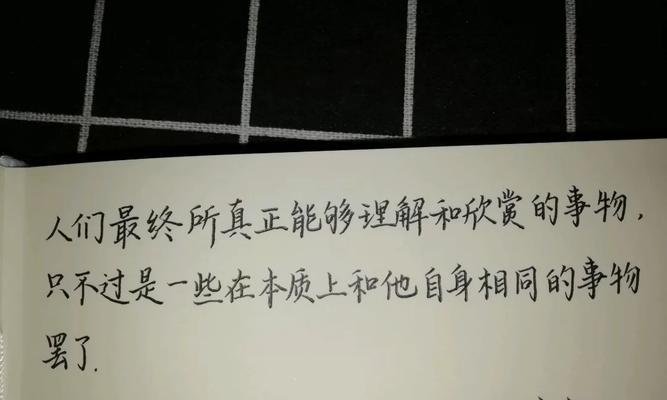 人们最终所真正能够理解和欣赏的事物，
只不过是一些在本质上和他自身相同的事物
罢了.